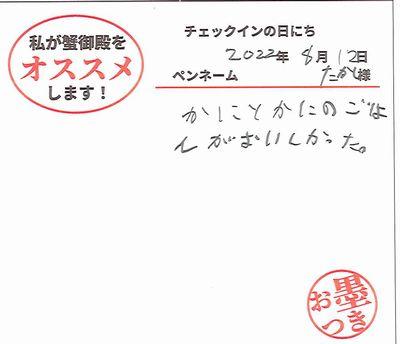 私が蟹御殿を
オススメ
します！
チェックインの日にち
2022年 8月 12日
ペンネーム たかし様
かにとかにのごは
んがおいしかった。
お墨
つき